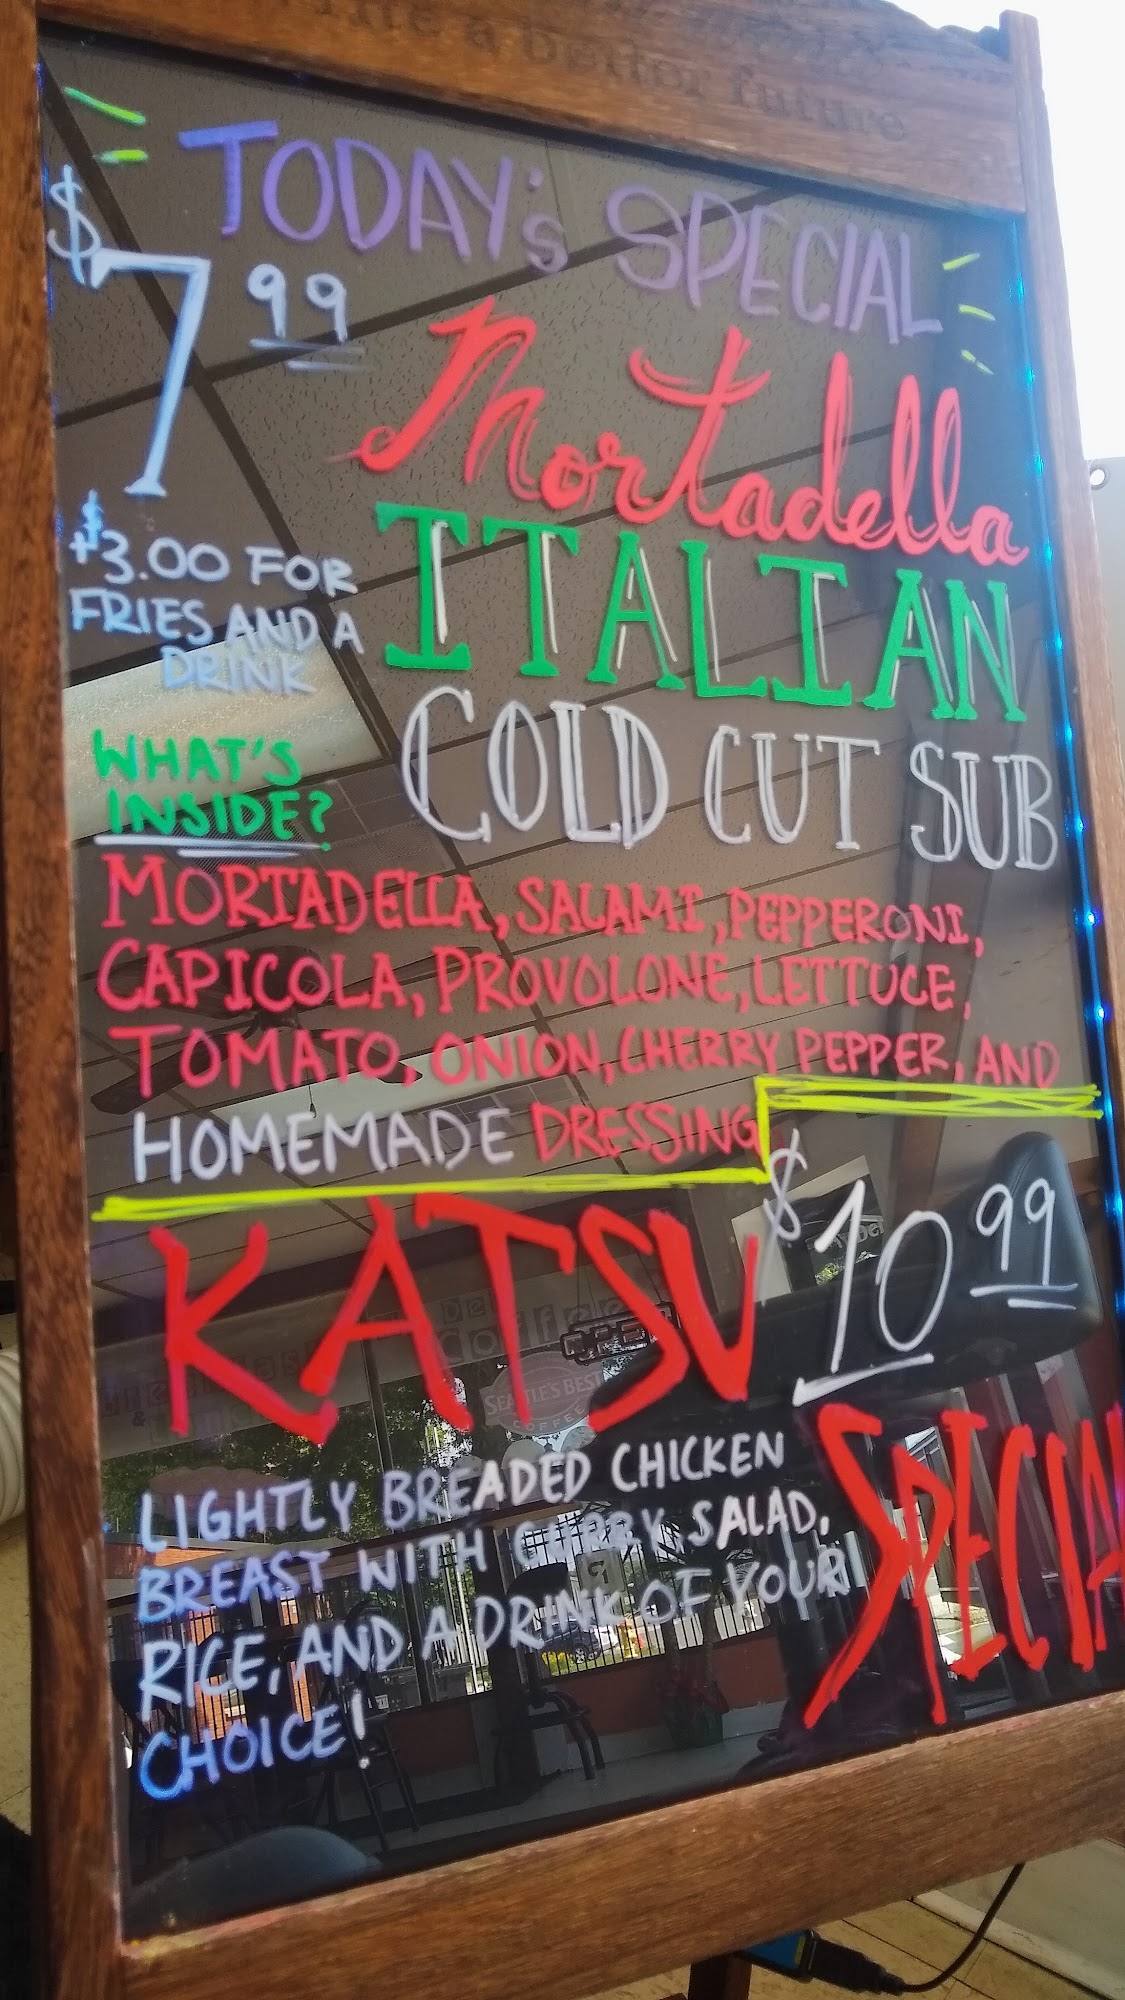 write a better future
TODAY'S SPECIAL
$7.99
+$3.00 FOR
FRIES AND A
DRINK
Mortadella
ITALIAN
COLD CUT SUB
WHAT'S
INSIDE?
MORTADELLA, SALAMI, PEPPERONI,
CAPICOLA, PROVOLONE, LETTUCE,
TOMATO, ONION, CHERRY PEPPER, AND
HOMEMADE DRESSING
KATSU
$10.99
SPECIA
LIGHTLY BREADED CHICKEN
BREAST WITH CURRY, SALAD,
RICE, AND A DRINK OF YOUR
CHOICE!
Coffee
OPEN
SEATTLE'S BEST
COFFEE